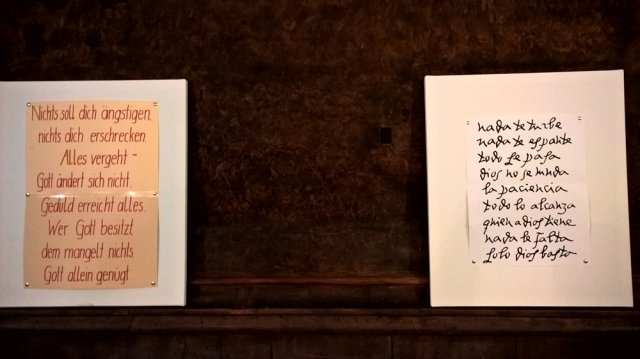 Nichts soll dich ängstigen,
nichts dich erschrecken.
Alles vergeht –
Gott ändert sich nicht.
Geduld erreicht alles.
Wer Gott besitzt
dem mangelt nichts.
Gott allein genügt.
nada te turbe
nada te espante
todo se pasa
dios no se muda
la paciencia
todo lo alcanza
quien a dios tiene
nada le falta
solo dios basta